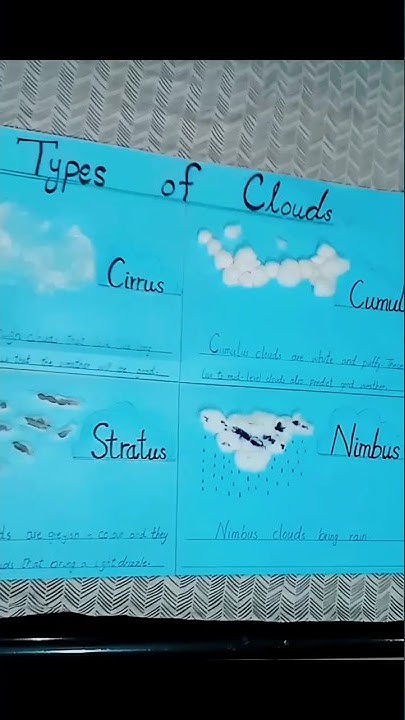 Types of Clouds
Cirrus
Cumul
clouds that
that the weather will be good.
Cumulus clouds are white and puffy. These
low to mid-level clouds also predict good weather.
Stratus
Nimbus
ds are grey in colour and they
uds that bring a light drizzle.
Nimbus clouds bring rain